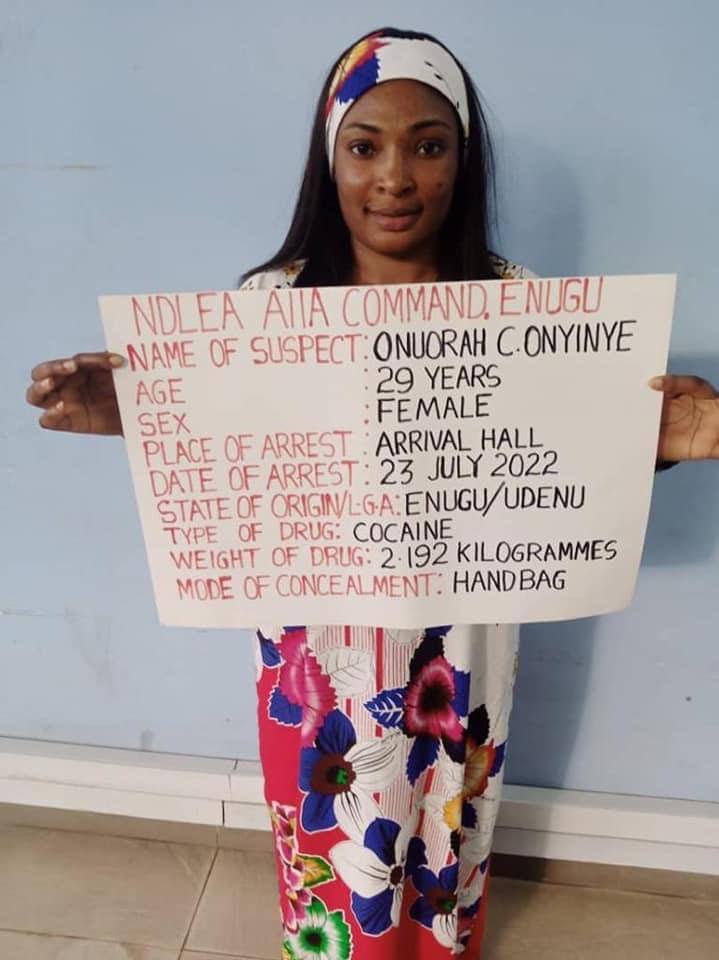 NDLEA AIIA COMMAND, ENUGU
NAME OF SUSPECT: ONUORAH C. ONYINYE
AGE : 29 YEARS
SEX : FEMALE
PLACE OF ARREST : ARRIVAL HALL
DATE OF ARREST : 23 JULY 2022
STATE OF ORIGIN/L·G·A: ENUGU/UDENU
TYPE OF DRUG: COCAINE
WEIGHT OF DRUG: 2·192 KILOGRAMMES
MODE OF CONCEALMENT: HANDBAG